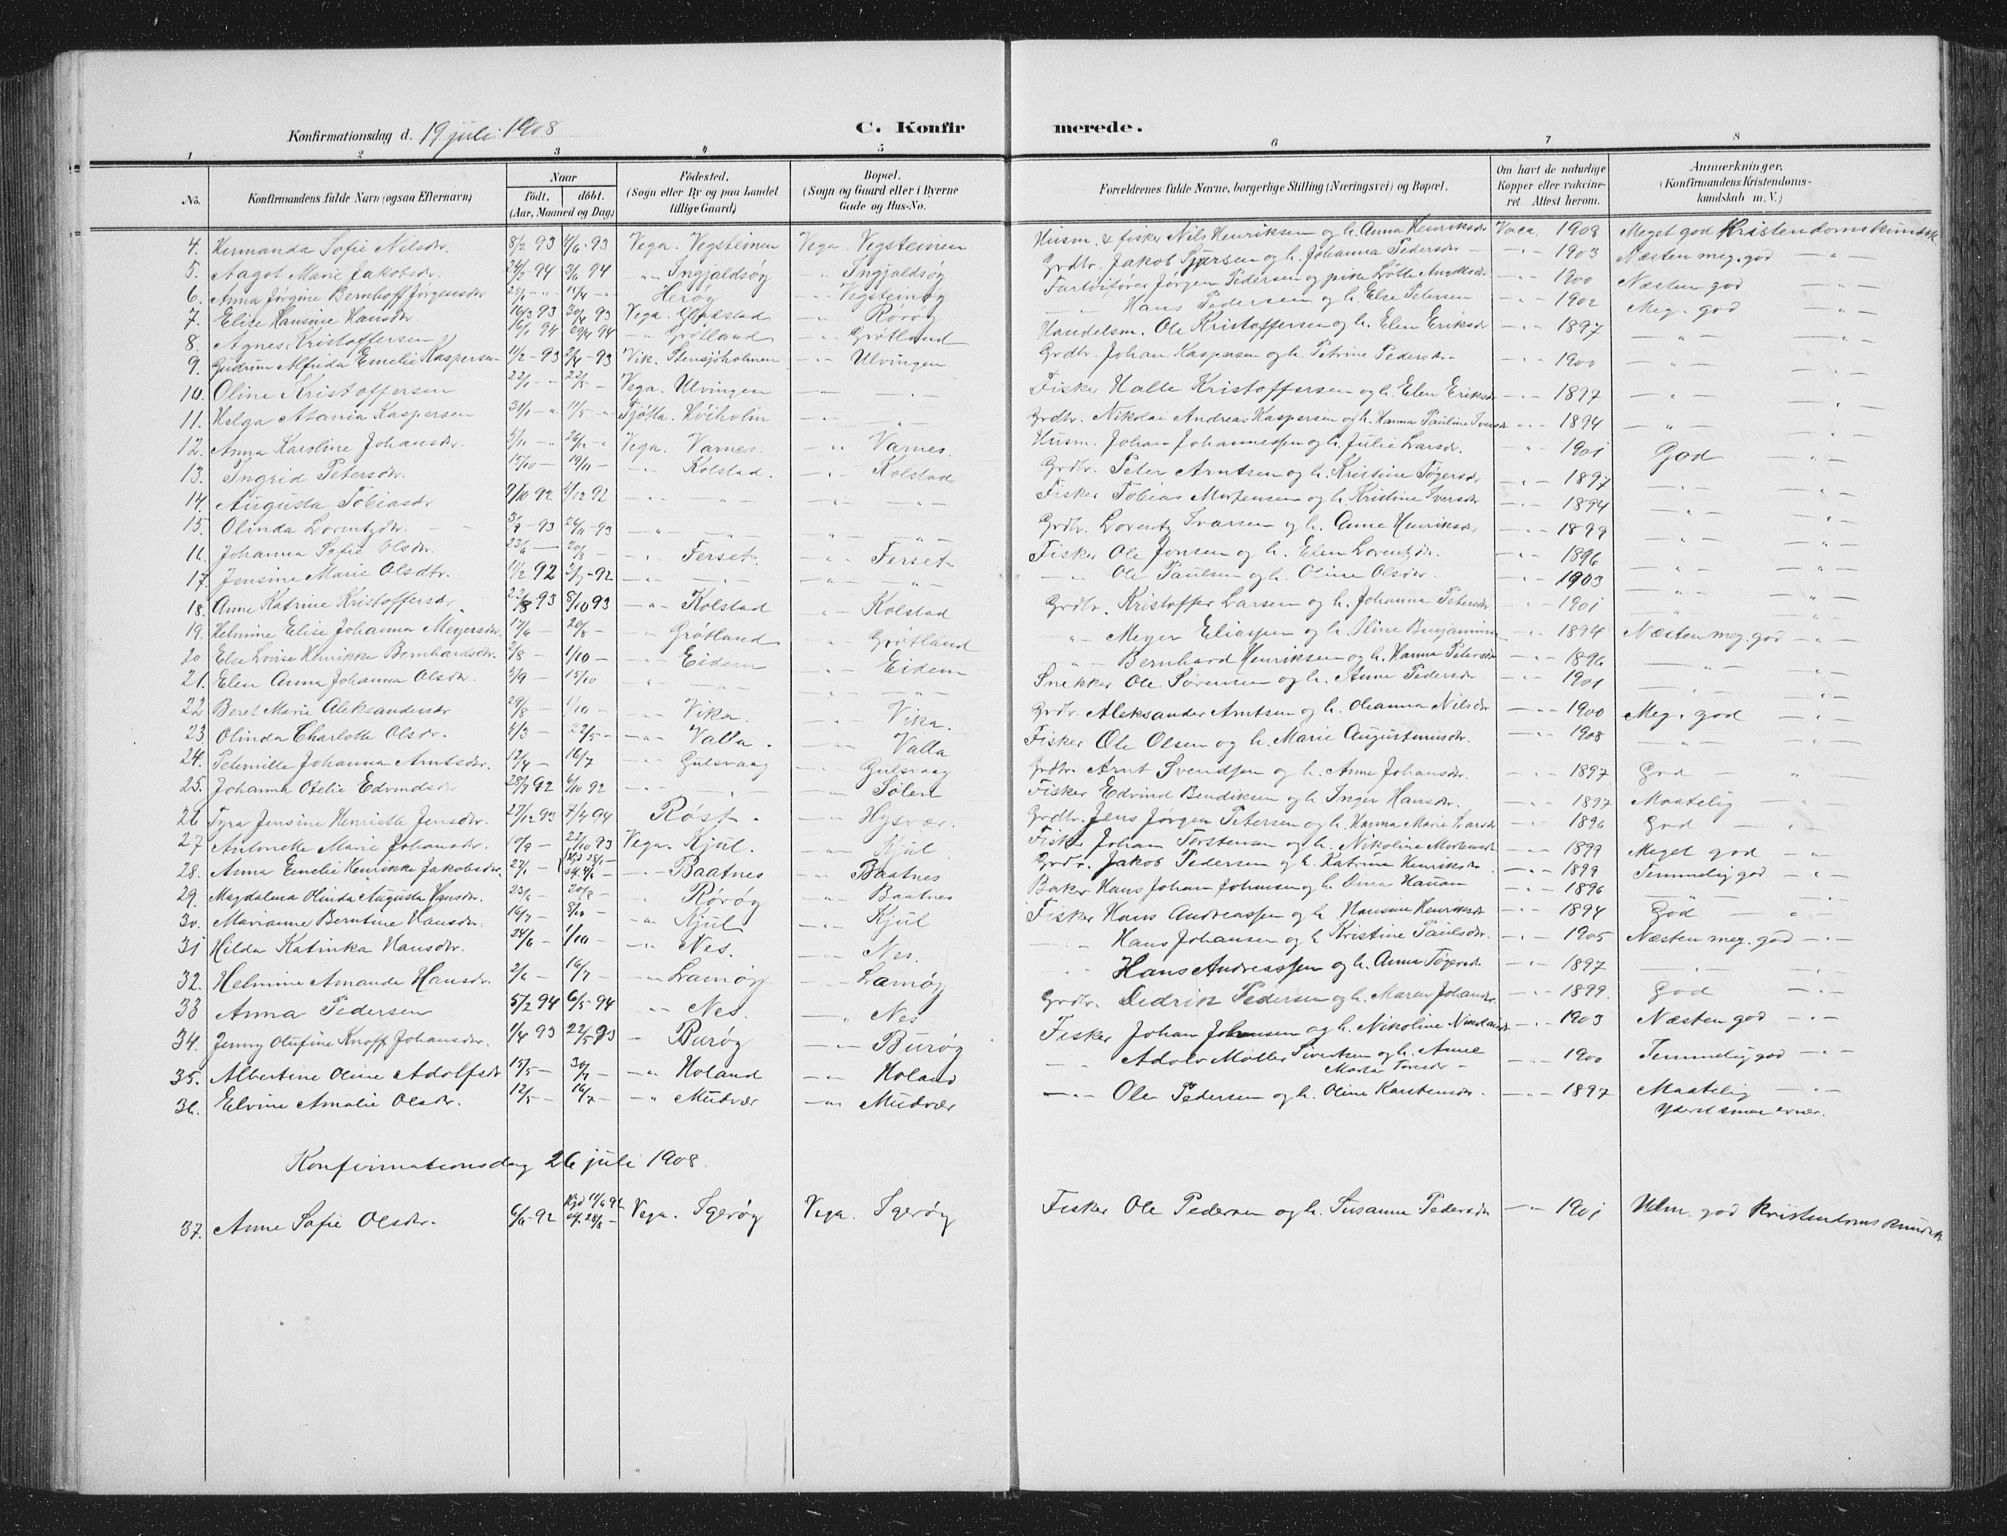 Konfirmationsdag d. 19 juli 1908
C. Konfirmerede.
1 2 3 4 5 6 7 8
No.
Konfirmandens fulde Navn (ogsaa Efternavn)
Naar
födt. döbt.
(Aar, Maaned og Dag)
Födested.
(Sogn eller By og paa Landet
tillige Gaard)
Bopæl.
(Sogn og Gaard eller i Byerne
Gade og Hus-No.
Forældrenes fulde Navne, borgerlige Stilling (Næringsvei) og Bopæl.
Om havt de naturlige
Kopper eller vakcine-
ret. Attest herom.
Anmærkninger.
(Konfirmandens Kristendoms-
kundskab m. V.)
4. Hermanda Sofie Nilsdr. 8/2 93 4/6 - 93 Vega. Vegsteinen Vega. Vegsteinen Husm. & fisker Nils Henriksen og h. Anna Henriksdr Vacc. 1908 Meget god Kristendomskundsk
5. Aagot Marie Jakobsdr. 24/2 94 94 - " - Ingjaldsøy - " - Ingjaldsøy Grdbr. Jakob og h. Johanna Pedersdr - " - 1903 Næsten meg. god - " -
6. Anna Jørgine Bernhoff Jørgensdr Herøy - " - Vegsteinøy Jørgen Pedersen og pike Lotte - " - 1900 Næsten god - " -
7. Elise Hansine Hansdr. 16/3 93 20/4 93 Vega. Rørøy Hans Pedersen og h. Else Petersen - " - 1902 Meg. god - " -
8. Agnes Kristoffersen 16/1 94 29/4 94 " Grøtland - " - Grøtland Handelsm. Ole Kristoffersen og h. Elen Eriksdr - " - 1897 - " - - " -
9. Gudrun Alfrida Emelie Kaspersen 11/2 - 93 2/4 - 93 Vik. Stensjøholmen - " - Ulvingen Grdbr. Johan Kaspersen og h. Petrine Pedersdr - " - 1900 - " - - " -
10. Oline Kristoffersen 22/1 - " 22/5 - Vega. Ulvingen - " - Fisker Halle Kristoffersen og h. Elen Eriksdr - " - 1897 - " - - " -
11. Helga Atania Kaspersen 31/1 - " 11/5 - " Tjøtta. Høiholm - " - Grdbr. Nikolai Andreas Kaspersen og h. Hanna Pauline Iversdr - " - 1894 - " - - " -
12. Anna Karoline Johansdr. Vega. Varnes. " Varnes. Husm. Johan Johannessen og h. Julie Larsdr. " 1901 God - " -
13. Ingrid Petersdr. 15/10 - 19/11 - - " - Kolstad. - " - Kolstad Grdbr. Peter Arntsen og h. Kristine Tøgersdr - " - 1897 - " - - " -
14. Augusta Tobiasdr 9/10 92 4/12 92 - " - " Fisker Tobias Mortensen og h. Kristine Iversdr - " - 1894 - " - - " -
15. Olinda Lorentzdr. 3/9 - 93 26/11 - 93 - " - " Grdbr. Lorentz Ivarsen og h. Anne Henriksdr - " - 1899 - " - - " -
16. Johanna Sofie Olsdr. 23/6 - 20/8 - - " - Ferset. " Ferset Fisker Ole Jonsen og h. Elen Lorentzdr. - " - 1896 - " - - " -
17. Jensine Marie Olsdtr. 11/2 92 3/7 - 92 - " - " - " - Ole Paulsen og h. Oline Olsdr. - " - 1903 - " - - " -
18. Anne Katrine Kristoffersdr, 22/8 93 8/10 93 - " - Kolstad " Kolstad Grdbr. Kristoffer Larsen og h. Johanna Petersdr - " - 1901 - " - - " -
19. Helmine Elise Johanna Meyersdr. 17/6 - 20/8 - - " - Grøtland " Grøtland " Meyer Eliassen og h. Oline Benjamins - " - 1894 Næsten meg. god - " -
20 Else Lovise Henrikke Bernhardsdr. 2/8 - 1/10 - - " - Eidem " Eidem " Bernhard Henriksen og h. Hanna Petersdr - " - 1896 - " - - " -
21. Elen Anna Johanna Olsdr. 3/9 - 15/10 - " - " Snekker Ole Sørensen og h. Anne Pedersdr - " - 1901 - " - - " -
22 Beret Marie Aleksandersdr 29/8 - 1/10 - - " - Vika. " Vika. Grdbr. Aleksander Arntsen og h. Johanna Nilsdr - " - 1900 Meg. god - " -
23 Olinda Charlotte Olsdr. 4/3 - 22/5 - - " - Valla. - " - Valla Fisker Ole Olsen og h. Marie Augustinusdr. - " - 1908 - " - - " -
24. Peternille Johanna Arntsdr. 12/4 - 16/7 - " - Gulsvaag - " - Gulsvaag Grdbr. Arnt Svendsen og h. Anne Johansdr. - " - 1897 God - "
25. Johanna Otelie Edvindsdr 28/7 92 9/10 92 - " - - " - Sølen Fisker Edvind Bendiksen og h. Inger Hansdr. - " - 1897 Maatelig - "
26 Tyra Jensine Henriette Jensdr. 27/12 93 7/4 94 Røst. - " - Hysvær. Grdbr. Jens Jørgen Petersen og h. Hanna Marie Larsdr - " - 1896 God - "
27 Antonette Marie Johansdr. 19/9 - 22/10 93 Vega. Kjul. - " - Kjul Fisker Johan Torstensen og h. Nikoline Mortensdr - " - 1899 Meget god - " -
28. Anna Emelie Henrikke Jakobsdr. 27/1 - - " - Baatnes " Baatnes Grdbr. Jakob Pedersen og h. Katrine Henriksdr. - " - 1899 Temmelig god - " -
29. Magdalena Olinda Augusta Hansdr. 23/6 - 20/8 - " Rørøy " Baatnes Baker Hans Johan Johansen og h. - " - 1896 - " -
30. Marianne Berntine Hansdr. 16/7 - 8/10 - " Kjul " Kjul Fisker Hans Andreassen og h. Hansine Henriksdr - " - 1894 God - "
31 Hilda Katinka Hansdr. 24/6 - 1/10 - " Nes. " Nes. " Hans Johansen og h. Kristine Paulsdr. - " - 1905 Næsten meg. god - " -
32. Helmine Amanda Hansdr. 2/6 - 16/7 - - " - Lamøy " Lamøy " Hans Andreassen og h. Anna Tøgersdr - " - 1897 - " - - " -
33 Anna Pedersen 5/2 94 6/5 - 94 - " - Nes. - " Nes Grdbr. Didrik Pedersen og h. Maren Johansdr. - " - 1899. God - " -
34. Jenny Olufine Knoff Johansdr. 1/4 93 22/5 93 - Burøy - " - Burøy Fisker Johan Johansen og h. Nikoline Nikolaisdr - " - 1903 Næsten god - " -
35. Albertine Oline Adolfsdr 15/5 - 30/7 - - " Holand - " - Holand - " - Adolv Møller Sivertsen og h. Anne - " - 1900 Temmelig god - " -
36. Elvine Amalie Olsdr. 12/5 - 16/7 - - " Mudvær - " - Mudvær - " - Ole Pedersen og h. Oline Karstensdr. - " - 1897 Maatelig - " -
Yderst smaa evner.
Konfirmationsdag 26 juli 1908.
37. Anne Sofie Olsdr. 6/6 - 92 Vega. Igerøy Vega. Igerøy Fisker Ole Pedersen og h. Susanne Pedersdr - " - 1901 Udm. god Kristendomskundsk.